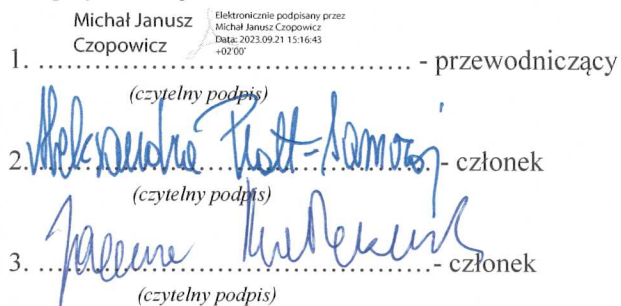 Michał Janusz Czopowicz
Elektronicznie podpisany przez
Michał Janusz Czopowicz
Data: 2023.09.21 15:16:43
+02'00'
1. .................................................... - przewodniczący
(czytelny podpis)
2. Aleksandra - członek
(czytelny podpis)
3. - członek
(czytelny podpis)